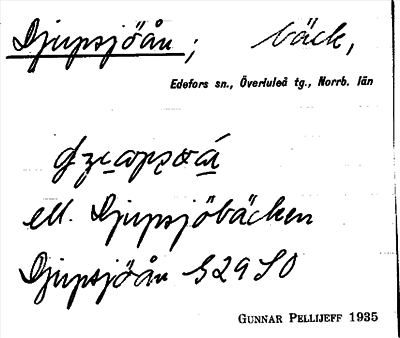 Djupsjöån; bäck,
Edefors sn., Överluleå tg., Norrb. län
ell. Djupsjöbäcken
Djupsjöån S29 SO
GUNNAR PELLIJEFF 1935